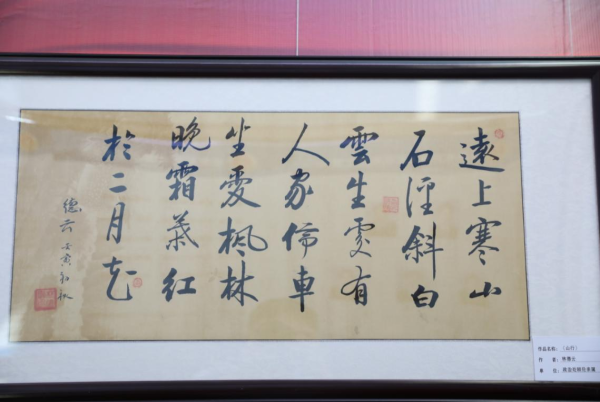 遠上寒山
石徑斜白
雲生處有
人家停車
坐愛楓林
晚霜葉紅
於二月花
德云 壬寅初秋
作品名称:《山行》
作 者:
单 位: